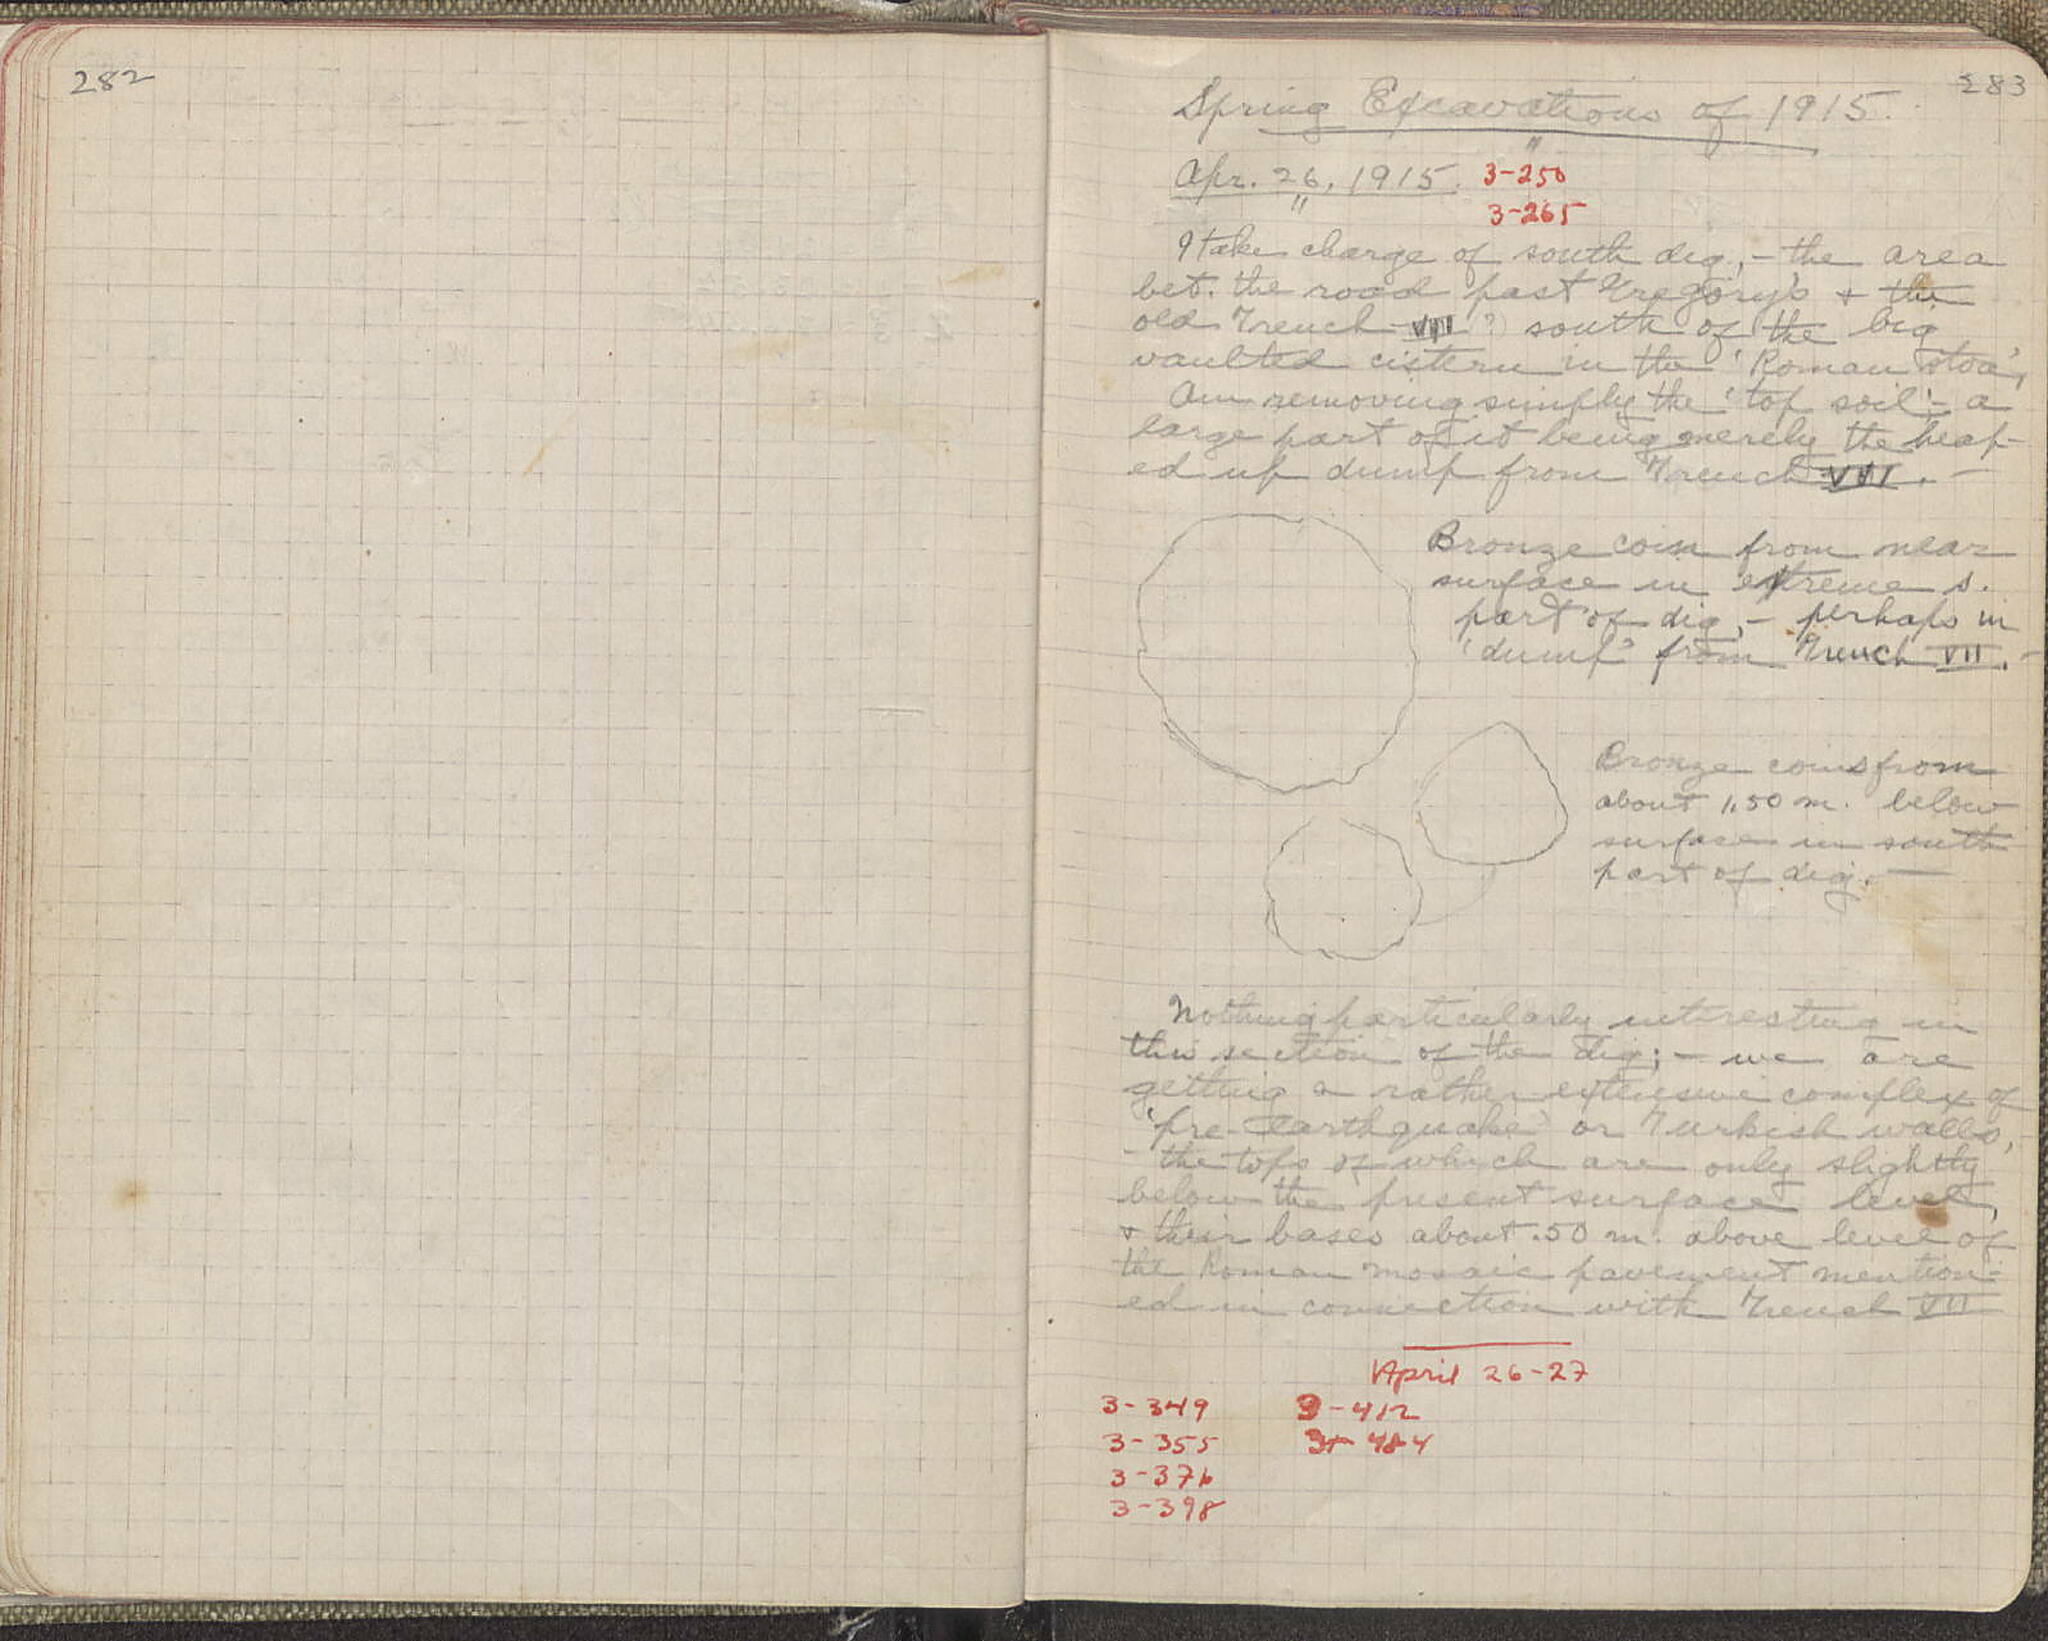 282
283
Spring Excavations of 1915.
Apr. 26, 1915. 3-250
3-265
I take charge of south dig, - the area
bet. the road past Gregory's & the
old Trench VIII (?) south of the big
vaulted cistern in the 'Roman stoa',
Am removing simply the 'top soil' - a
large part of it being merely the heap-
ed up dump from Trench VII. -
Bronze coin from near
surface in extreme s.
part of dig, - perhaps in
'dump' from Trench VII. -
Bronze coins from
about 1.50 m. below
surface in south
part of dig. -
Nothing particularly interesting in
this section of the dig; - we are
getting a rather extensive complex of
'pre-earthquake' or Turkish walls, -
- the tops of which are only slightly
below the present surface level,
& their bases about .50 m. above level of
the Roman mosaic pavement mention-
ed in connection with Trench VII
April 26-27
3-349 3-412
3-355 3-484
3-376
3-398